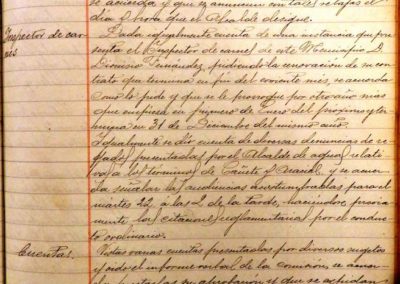 se acuerda, y que se anuncien con tal
dia y hora que el Alcalde designe.
Inspector de car-
nes
Dada igualmente cuenta de una instancia que pre
senta el Inspector de carnes de este Municipio D.
Dionisio Fernández, pidiendo la renovación de su con
trato que termina en fin del corriente mes, se acuerda
como lo pide y que se le prorrogue por otro año más
que empieza en primero de Enero del próximo y ter
mina en 31 de Diciembre del mismo año.
Igualmente se dió cuenta de diversas denuncias de re
gados presentadas por el Alcalde de aguas, relati
va a los términos de Cañete y y se acuer
da señalar la audiencias acostumbradas para el
martes 22, a las 2 de la tarde, haciéndose previa
mente las citaciones reglamentarias por el conduc
to ordinario.
Cuentas.
Vistas varias cuentas presentadas por diversos sugetos
y oido el informe verbal de la comisión, se acuer
da su aprobación y que se expidan